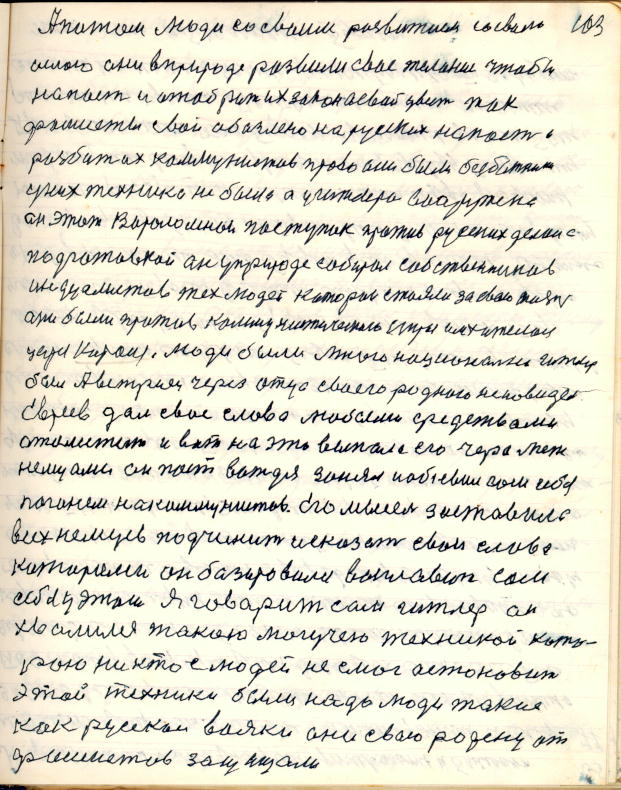 А потом люди со своим развитием со своею 103
силою они в природе развили свое желание чтобы
напаст и отобрат их закона свой цвет так
фашисты свой обозлено на русских напаст и
разбит их коммунистов право они были безбатники
у них техника не была а у гитлера вооружена
он этот вороломной поступок против русских делал с
подготовкой он у природе собирал собственников
индуалистов тех людей которои стояли за свою жизнь
они были против коммунистической
Люди были много национально гитлер
был Австриец через отца своего родного неновидел
Евреев дал свое слова любыми средствами
отомстит и вот на это выпала его чера меж
немцами он пост вождя занял и обевил сам себя
поганем на коммунистов. Его мысея заставила
всех немцев подчинит и сказат свои слова
которами он базировали воплавит сам
себя у этом Я говарит сам гитлер он
хвалился такою могучею техникой кото-
рою никто с людей не смог остоновит
Этой техники были надо люди такие
как русскаи вояки они свою родену от
фашистов защищали